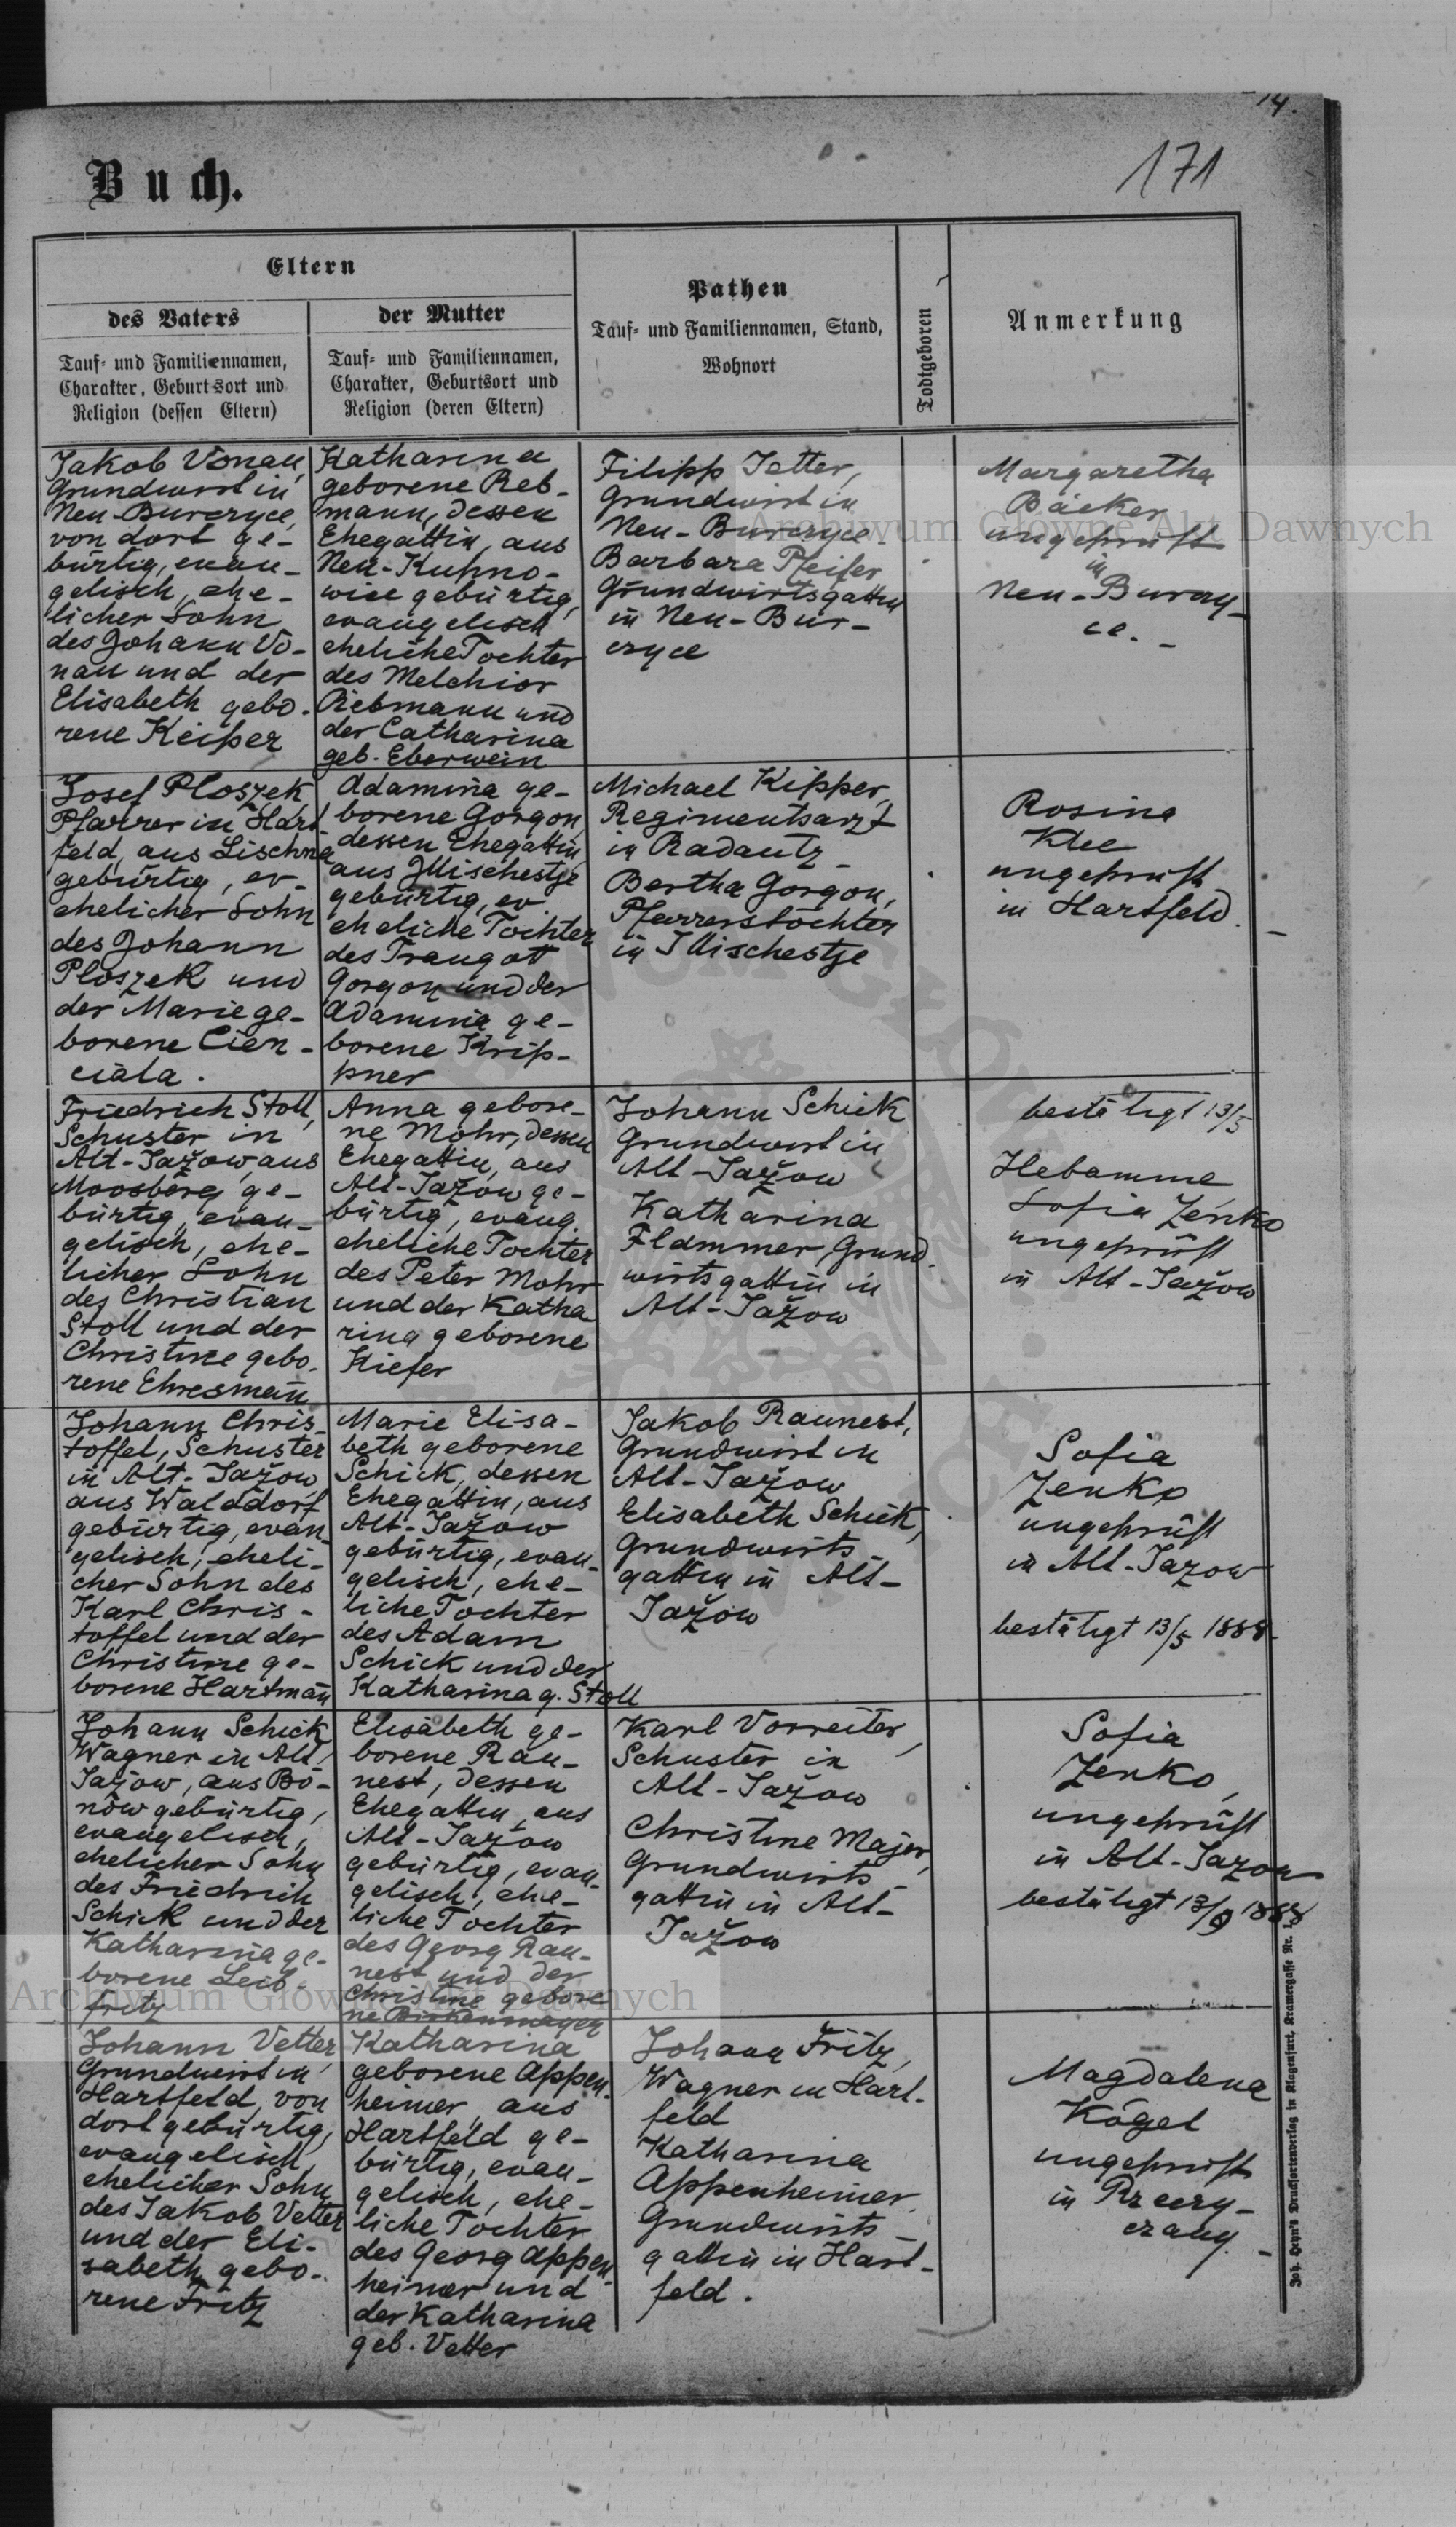 14.
171
Buch.
Eltern
des Vaters
Tauf- und Familiennamen,
Charakter, Geburtsort und
Religion (dessen Eltern)
der Mutter
Tauf- und Familiennamen,
Charakter, Geburtsort und
Religion (deren Eltern)
Pathen
Tauf- und Familiennamen, Stand,
Wohnort
Todtgeboren
Anmerkung
Jakob Vonau,
Grundwirt in
Neu-Burczyce,
von dort ge-
bürtig, evan-
gelisch, ehe-
licher Sohn
des Johann Vo-
nau und der
Elisabeth gebo-
rene Keiper
Katharina
geborene Reb-
mann, dessen
Ehegattin, aus
Neu-Kupno-
wice gebürtig,
evangelisch
eheliche Tochter
des Melchior
Rebmann und
der Catharina
geb. Eberwein
Filipp Jetter,
Grundwirt in
Neu-Burczyce-
Barbara Pfeifer
Grundwirtsgattin
in Neu-Bur-
czyce
Margaretha
Bäcker
ungeprüft
in
Neu-Burczy-
ce. -
Josef Ploszek,
Pfarrer in Hart-
feld, aus Lischna
gebürtig, ev.
ehelicher Sohn
des Johann
Ploszek und
der Marie ge-
borene Cien-
ciala.
Adamina ge-
borene Gorgon,
dessen Ehegattin,
aus Illischestje
gebürtig, ev.
eheliche Tochter
des Traugott
Gorgon und der
Adamina ge-
borene Krip-
pner
Michael Kipper,
Regimentsarzt
in Radautz -
Bertha Gorgon,
Pfarrerstochter
in Illischestje
Rosina
Klee
ungeprüft
in Hartfeld. -
Friedrich Stoll,
Schuster in
Alt-Jažow, aus
Moosberg ge-
bürtig, evan-
gelisch, ehe-
licher Sohn
des Christian
Stoll und der
Christine gebo-
rene Ehresmañ
Anna gebore-
ne Mohr, dessen
Ehegattin, aus
Alt-Jažow ge-
bürtig, evang.
eheliche Tochter
des Peter Mohr
und der Katha
rina geborene
Kiefer
Johann Schick
Grundwirt in
Alt-Jažow
Katharina
Flammer, Grund-
wirtsgattin in
Alt-Jažow
bestätigt 13/5
Hebamme
Sofia Zenko
ungeprüft
in Alt-Jažow
Johann Chris-
toffel, Schuster
in Alt-Jažow,
aus Walddorf
gebürtig, evan-
gelisch, eheli-
cher Sohn des
Karl Chris-
toffel und der
Christine ge-
borene Hartmañ
Marie Elisa-
beth geborene
Schick, dessen
Ehegattin, aus
Alt-Jažow
gebürtig, evan-
gelisch, ehe-
liche Tochter
des Adam
Schick und der
Katharina g. Stoll
Jakob Raunest,
Grundwirt in
Alt-Jažow
Elisabeth Schick,
Grundwirts-
gattin in Alt-
Jažow
Sofia
Zenko
ungeprüft
in Alt-Jazow
bestätigt 13/5 1888
Johann Schick,
Wagner in Alt-
Jažow, aus Bo-
now gebürtig,
evangelisch,
ehelicher Sohn
des Friedrich
Schick und der
Katharina ge-
borene Leib-
fritz
Elisabeth ge-
borene Rau-
nest, dessen
Ehegattin, aus
Alt-Jažow
gebürtig, evan-
gelisch, ehe-
liche Tochter
des Georg Rau-
nest und der
Christine gebore
ne Birkenmayer
Karl Vorreiter,
Schuster in
Alt-Jažow
Christine Majer,
Grundwirts-
gattin in Alt-
Jažow
Sofia
Zenko,
ungeprüft
in Alt-Jazow
bestätigt 13/9 1888
Johann Vetter,
Grundwirt in
Hartfeld, von
dort gebürtig,
evangelisch,
ehelicher Sohn
des Jakob Vetter
und der Eli-
sabeth gebo-
rene Fritz
Katharina
geborene Appen-
heimer, aus
Hartfeld ge-
bürtig, evan-
gelisch, ehe-
liche Tochter
des Georg Appen-
heimer und
der Katharina
geb. Vetter
Johann Fritz,
Wagner in Hart-
feld
Katharina
Appenheimer
Grundwirts-
gattin in Hart-
feld.
Magdalena
Kögel
ungeprüft
in
Joh. Heyn's Drucksortenverlag in Klagenfurt, Kramergasse Nr. 1.
Archiwum Główne Akt Dawnych
Archiwum Główne Akt Dawnych